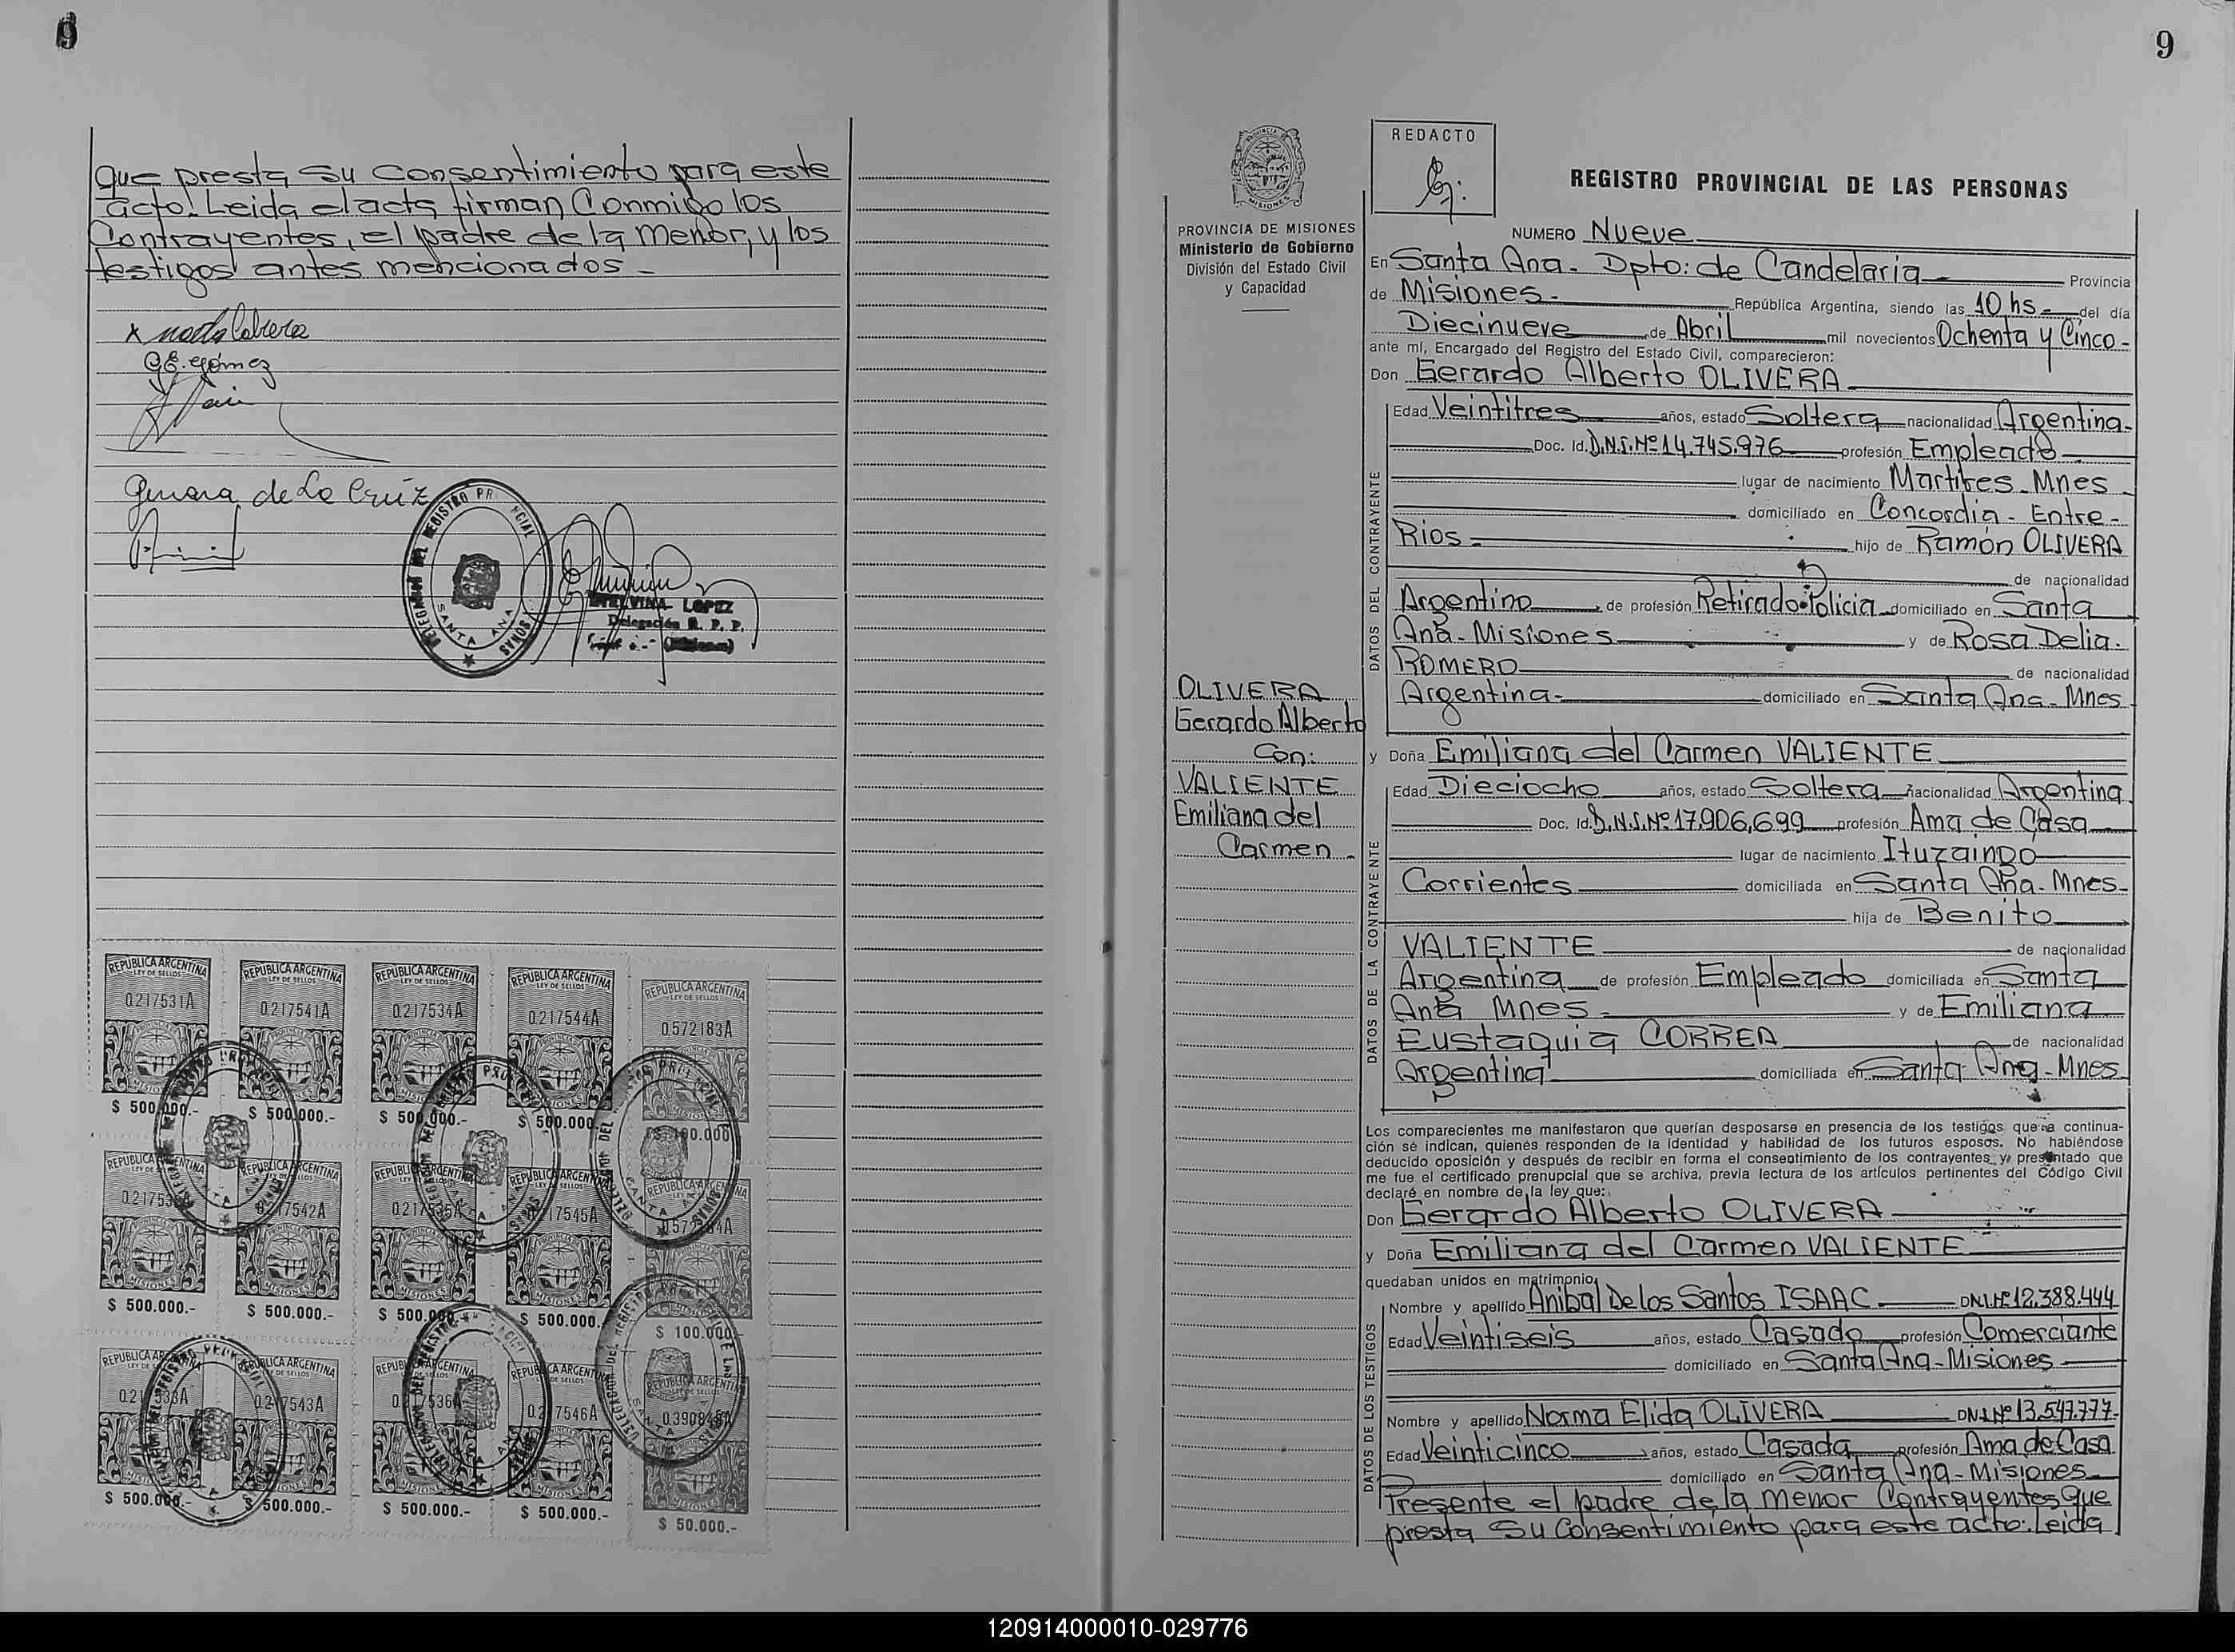 9
que presta su consentimiento para este
acto. Leida el acta firman Conmigo los
Contrayentes, el padre de la menor, y los
testigos antes mencionados -
G E. Gómez
de La Cruz
SANTA ANA
LOPEZ
Delegación R. P. P.
(Misiones)
REPUBLICA ARGENTINA
LEY DE SELLOS
0.217531A
MISIONES
$ 500.000.-
REPUBLICA ARGENTINA
LEY DE SELLOS
0.217541A
MISIONES
$ 500.000.-
REPUBLICA ARGENTINA
LEY DE SELLOS
0.217534A
$ 500.000.-
REPUBLICA ARGENTINA
LEY DE SELLOS
0.217544A
$ 500.000.-
REPUBLICA ARGENTINA
LEY DE SELLOS
0.572183A
MISIONES
$ 500.000.-
$ 500.000.-
$ 500.000.-
$ 100.000.-
$ 500.000.-
$ 500.000.-
$ 500.000.-
$ 500.000.-
$ 50.000.-
9
PROVINCIA DE MISIONES
Ministerio de Gobierno
División del Estado Civil
y Capacidad
OLIVERA
Gerardo Alberto
Con:
VALIENTE
Emiliana del
Carmen -
REDACTO
REGISTRO PROVINCIAL DE LAS PERSONAS
NUMERO Nueve
En Santa Ana - Dpto: de Candelaria Provincia
de Misiones - República Argentina, siendo las 10 hs - del día
Diecinueve de Abril mil novecientos Ochenta y Cinco -
ante mí, Encargado del Registro del Estado Civil, comparecieron:
Don Gerardo Alberto OLIVERA
DATOS DEL CONTRAYENTE
Edad Veintitres años, estado Soltera nacionalidad Argentina-
Doc. Id. D.N.I. Nº 14.745.976 profesión Empleado
lugar de nacimiento Martires - Mnes -
domiciliado en Concordia - Entre -
Rios - hijo de Ramón OLIVERA
de nacionalidad
Argentino de profesión Retirado Policia domiciliado en Santa
Ana - Misiones y de Rosa Delia.
ROMERO de nacionalidad
Argentina - domiciliado en Santa Ana - Mnes
y Doña Emiliana del Carmen VALIENTE
DATOS DE LA CONTRAYENTE
Edad Dieciocho años, estado Soltera nacionalidad Argentina
Doc. Id. D.N.I. Nº 17.906,699 profesión Ama de Casa
lugar de nacimiento Ituzaingo
Corrientes domiciliada en Santa Ana - Mnes-
hija de Benito
VALIENTE de nacionalidad
Argentina de profesión Empleado domiciliada en Santa
Ana Mnes - y de Emiliana
Eustaquia CORREA de nacionalidad
Argentina domiciliada en Santa Ana - Mnes
Los comparecientes me manifestaron que querían desposarse en presencia de los testigos que a continua-
ción se indican, quienes responden de la identidad y habilidad de los futuros esposos. No habiéndose
deducido oposición y después de recibir en forma el consentimiento de los contrayentes y presentado que
me fue el certificado prenupcial que se archiva, previa lectura de los artículos pertinentes del Código Civil
declaré en nombre de la ley que:
Don Gerardo Alberto OLIVERA
y Doña Emiliana del Carmen VALIENTE
quedaban unidos en matrimonio
DATOS DE LOS TESTIGOS
Nombre y apellido Anibal De los Santos ISAAC DNI. Nº 12.388.444
Edad Veintiseis años, estado Casado profesión Comerciante
domiciliado en Santa Ana - Misiones
Nombre y apellido Norma Elida OLIVERA DNI Nº 13.547.777-
Edad Veinticinco años, estado Casada profesión Ama de Casa
domiciliado en Santa Ana - Misiones
Presente el padre de la menor Contrayentes que
presta su Consentimiento para este acto. Leida
120914000010-029776